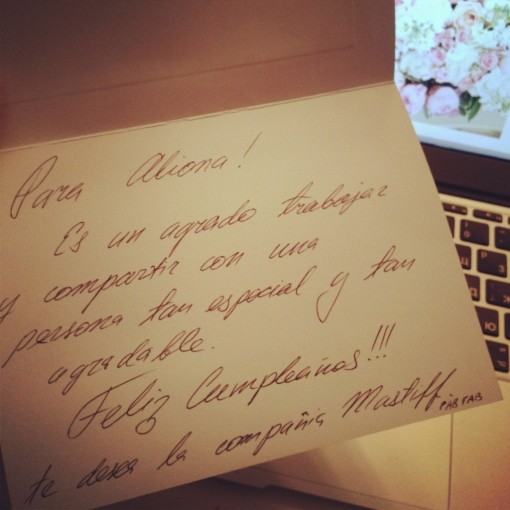 Para Aliona!
Es un agrado trabajar
y compartir con una
persona tan especial y tan
agradable.
Feliz Cumpleaños!!!
te desea la compañia Mastiff